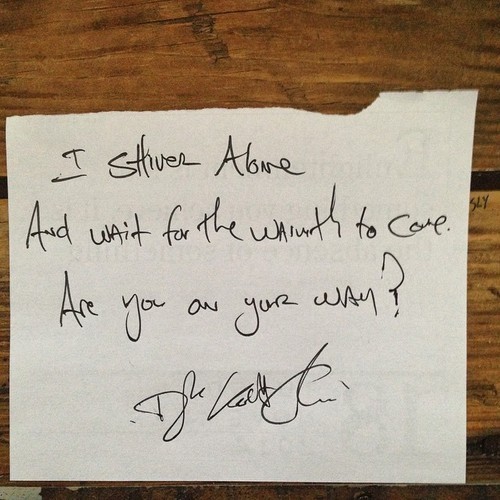 I Shiver Alone
And wait for the warmth to come.
Are you on your way?